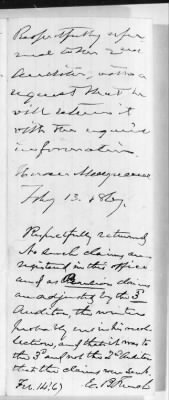 Respectfully refer
red to the 2nd
Auditor, with a
request that he
will return it
with the required
information.
Horace
Feby 13. 1867.
Respectfully returned
No such claims are
registered in this office
and as Pension claims
are adjusted by the 3d
Auditor, the writer is
probably in his recol
lection, and that it was to
the 3d and not the 2d Auditor
that the claims were sent.
Feb. 14. 67 E. B. French